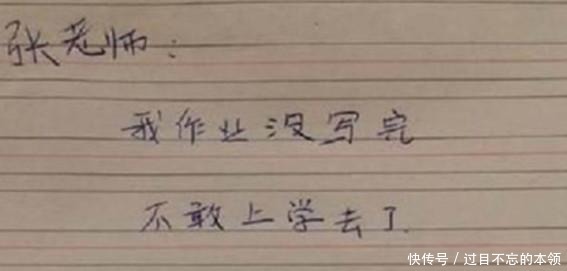 张老师：
我作业没写完
不敢上学去了.
快传号／过目不忘的本领